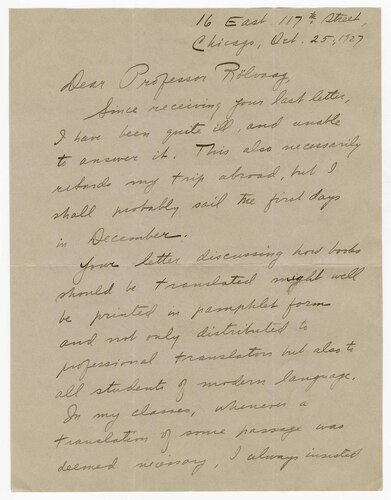 16 East 117th Street,
Chicago, Oct. 25, 1927
Dear Professor Rölvaag,
Since receiving your last letter,
I have been quite ill, and unable
to answer it. This also necessarily
retards my trip abroad, but I
shall probably sail the first days
in December.
Your letter discussing how books
should be translated might well
be printed in pamphlet form
and not only distributed to
professional translators but also to
all students of modern language.
In my classes, whenever a
translation of some passage was
deemed necessary, I always insisted